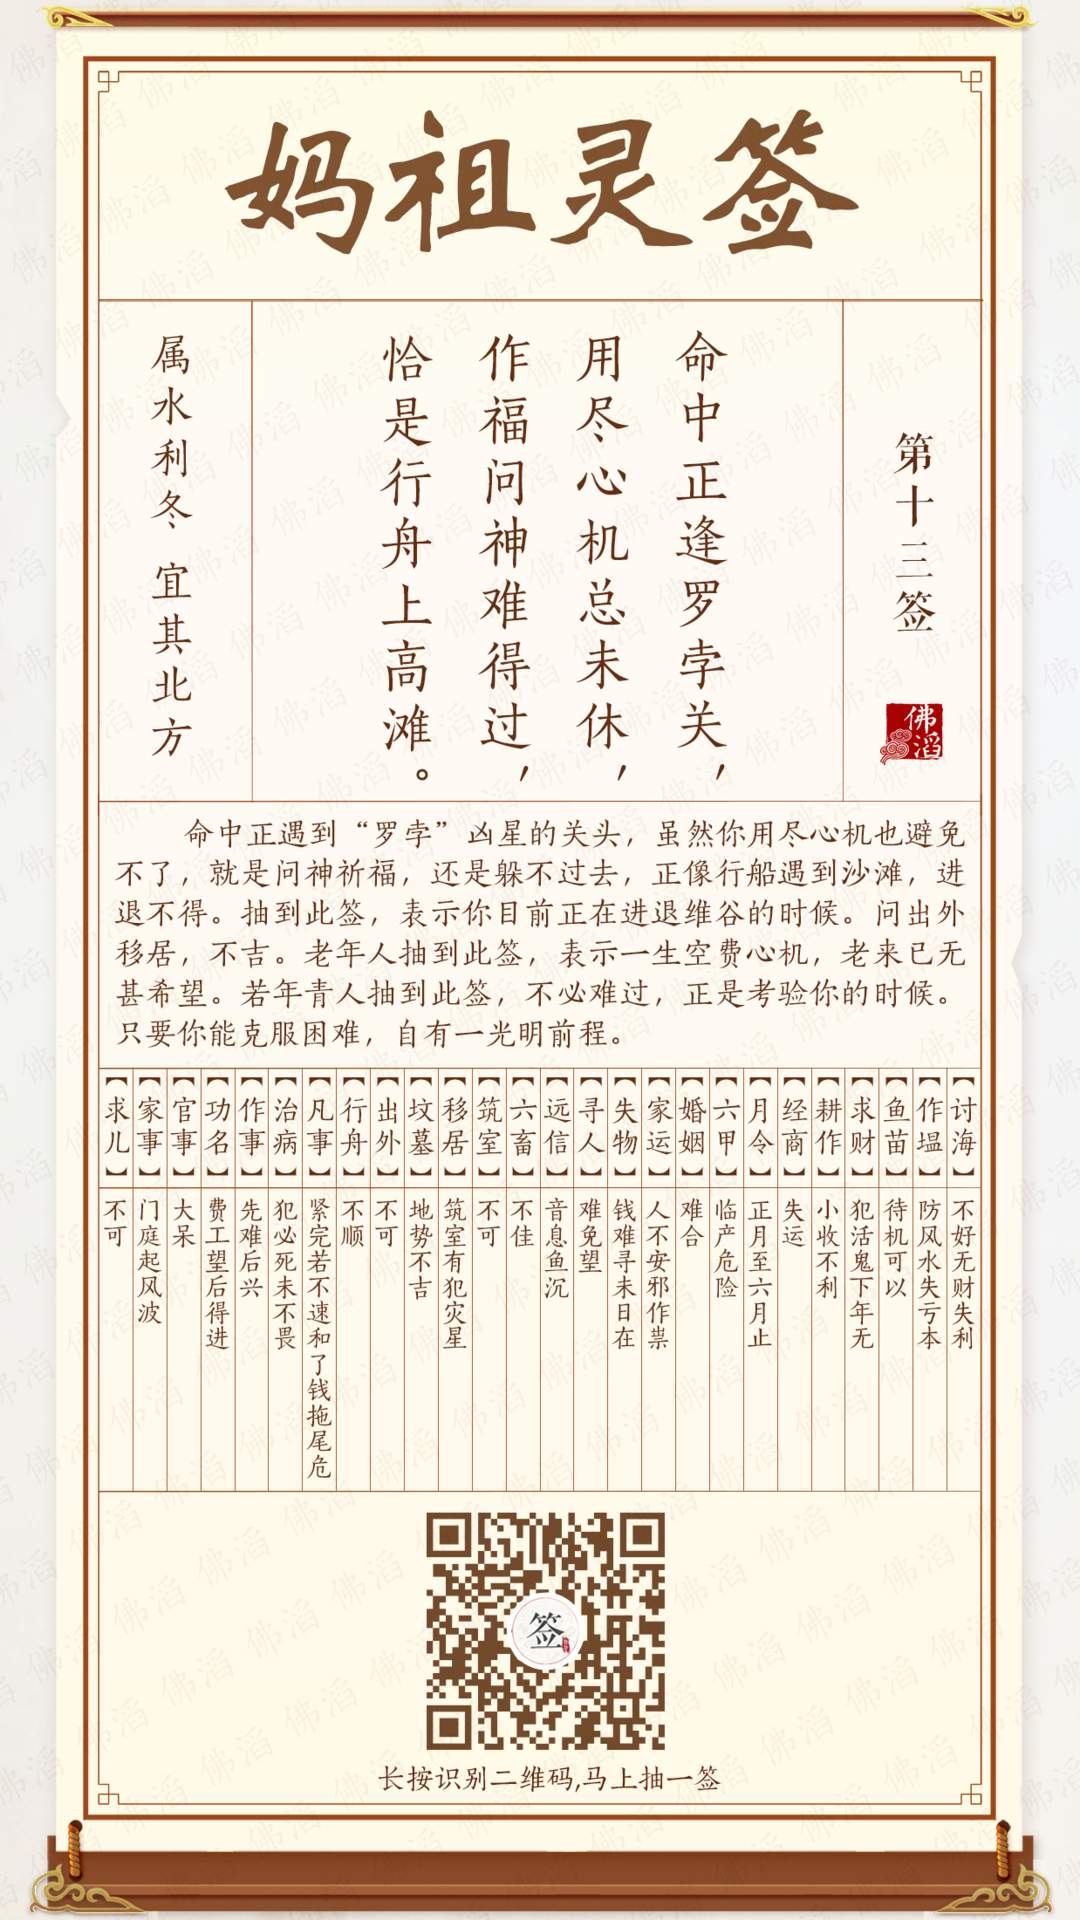 妈祖灵签
第十三签
佛滔
命中正逢罗孛关，
用尽心机总未休，
作福问神难得过，
恰是行舟上高滩。
属水利冬 宜其北方
命中正遇到“罗孛”凶星的关头，虽然你用尽心机也避免
不了，就是问神祈福，还是躲不过去，正像行船遇到沙滩，进
退不得。抽到此签，表示你目前正在进退维谷的时候。问出外
移居，不吉。老年人抽到此签，表示一生空费心机，老来已无
甚希望。若年青人抽到此签，不必难过，正是考验你的时候。
只要你能克服困难，自有一光明前程。
【讨海】不好无财失利
【作塭】防风水失亏本
【鱼苗】待机可以
【求财】犯活鬼下年无
【耕作】小收不利
【经商】失运
【月令】正月至六月止
【六甲】临产危险
【婚姻】难合
【家运】人不安邪作祟
【失物】钱难寻未日在
【寻人】难免望
【远信】音息鱼沉
【六畜】不佳
【筑室】不可
【移居】筑室有犯灾星
【坟墓】地势不吉
【出外】不可
【行舟】不顺
【凡事】紧完若不速和了钱拖尾危
【治病】犯必死未不畏
【作事】先难后兴
【功名】费工望后得进
【官事】大呆
【家事】门庭起风波
【求儿】不可
签
长按识别二维码,马上抽一签